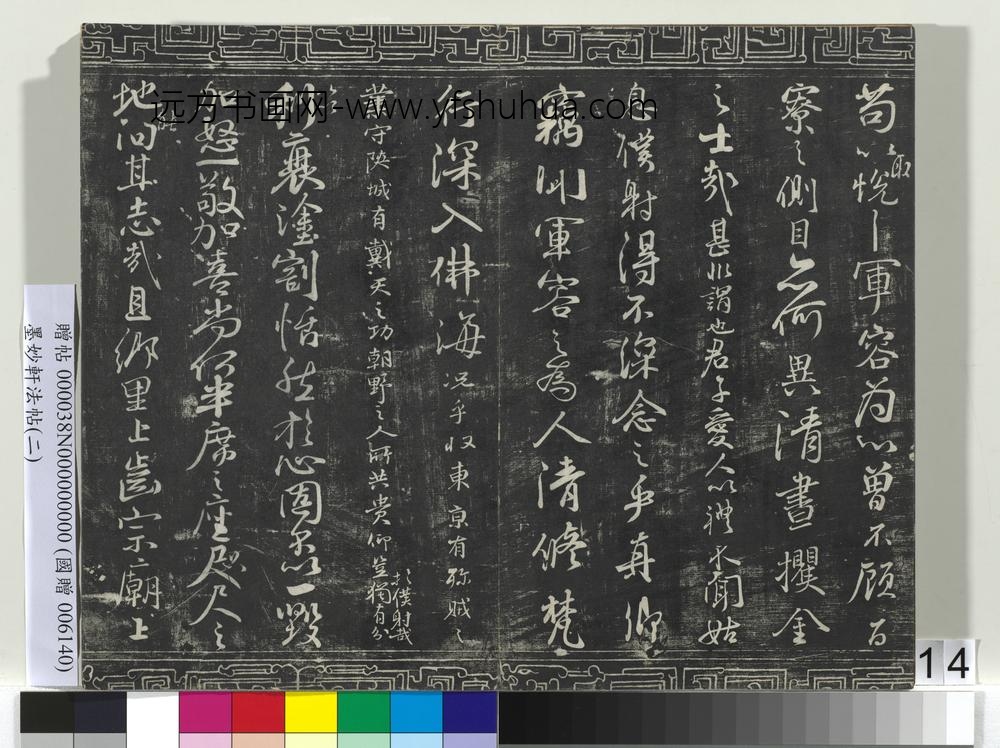 苟以取悅軍容為心曾不顧百
寮之側目亦何異清晝攫金
之士哉甚非謂也君子愛人以禮不聞姑
息僕射得不深念之乎真卿
竊聞軍容之為人清修梵
行深入佛海況乎收東京有殄賊之
業守陝城有戴天之功朝野之人所共貴仰豈獨有分於僕射哉
利衰塗割恬然於心固不以一毀
加怒一敬加喜尚何半席之座咫尺之
地汩其志哉且鄉里上齒宗廟上
远方书画网-www.yfshuhua.com
贈帖 000038N000000000 (國贈 006140)
墨妙軒法帖(二)
14